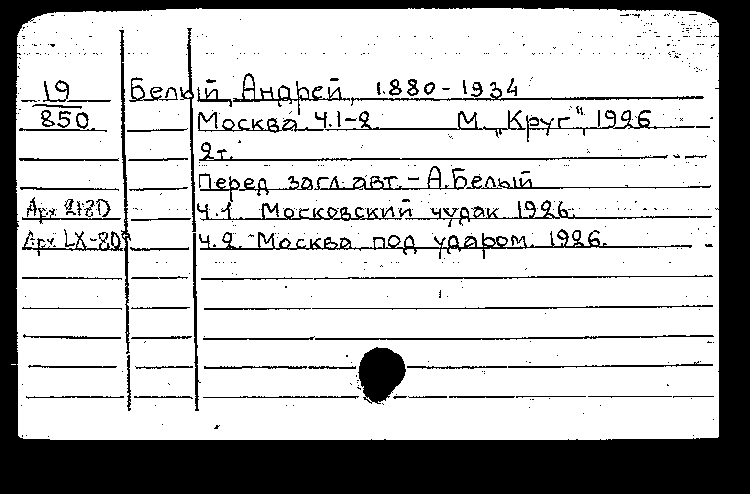 19 Белый, Андрей, 1880-1934
850. Москва. Ч.1-2. М. „Круг", 1926.
2т.
Перед загл. авт. - А.Белый
Арх 2180 Ч.1. Московский чудак 1926.
Арх LX-80 Ч.2. Москва под ударом. 1926.